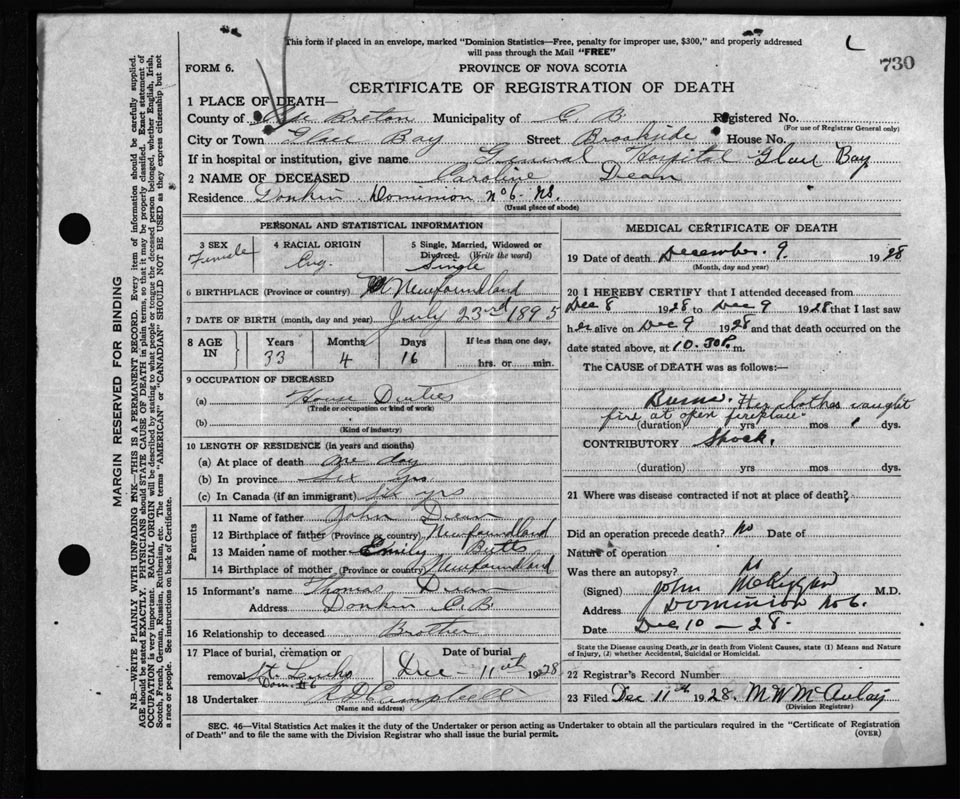 This form if placed in an envelope, marked "Dominion Statistics—Free, penalty for improper use, $300," and properly addressed
will pass through the Mail "FREE"
730
FORM 6. PROVINCE OF NOVA SCOTIA
CERTIFICATE OF REGISTRATION OF DEATH
1 PLACE OF DEATH—
County of Cape Breton Municipality of C. B. Registered No.
(For use of Registrar General only)
City or Town Glace Bay Street Brookside House No.
If in hospital or institution, give name General Hospital Glace Bay
2 NAME OF DECEASED Caroline Dean
Residence Donkin Dominion No 6. NS.
(Usual place of abode)
PERSONAL AND STATISTICAL INFORMATION
3 SEX Female
4 RACIAL ORIGIN Eng.
5 Single, Married, Widowed or Divorced. (Write the word) Single
6 BIRTHPLACE (Province or country) Newfoundland
7 DATE OF BIRTH (month, day and year) July 23rd 1895
8 AGE IN Years 33 Months 4 Days 16 If less than one day, hrs. or min.
9 OCCUPATION OF DECEASED
(a) House Duties
(Trade or occupation or kind of work)
(b)
(Kind of industry)
10 LENGTH OF RESIDENCE (in years and months)
(a) At place of death one day
(b) In province six yrs
(c) In Canada (if an immigrant) six yrs
Parents
11 Name of father John Dean
12 Birthplace of father (Province or country) Newfoundland
13 Maiden name of mother Emily Butts
14 Birthplace of mother (Province or country) Newfoundland
15 Informant's name Thomas Dean
Address Donkin C.B.
16 Relationship to deceased Brother
17 Place of burial, cremation or removal St. Lukes Dom. #6
Date of burial Dec - 11th 1928
18 Undertaker Campbell
(Name and address)
MEDICAL CERTIFICATE OF DEATH
19 Date of death December. 9. 1928
(Month, day and year)
20 I HEREBY CERTIFY that I attended deceased from
Dec 8 1928 to Dec 9 1928 that I last saw
her alive on Dec 9 1928 and that death occurred on the
date stated above, at 10.30 P. m.
The CAUSE of DEATH was as follows:—
Burns. Her clothes caught
fire at open fireplace.
(duration) yrs mos dys.
CONTRIBUTORY Shock.
(duration) yrs mos dys.
21 Where was disease contracted if not at place of death?
Did an operation precede death? No Date of
Nature of operation
Was there an autopsy? No
(Signed) John McKiggan M.D.
Address Dominion No 6.
Date Dec 10 — 28.
State the Disease causing Death, or in death from Violent Causes, state (1) Means and Nature
of Injury, (2) whether Accidental, Suicidal or Homicidal.
22 Registrar's Record Number
23 Filed Dec 11th 1928. M W McAulay
(Division Registrar)
SEC. 46—Vital Statistics Act makes it the duty of the Undertaker or person acting as Undertaker to obtain all the particulars required in the "Certificate of Registration
of Death" and to file the same with the Division Registrar who shall issue the burial permit.
(OVER)
MARGIN RESERVED FOR BINDING
N.B.—WRITE PLAINLY WITH UNFADING INK—THIS IS A PERMANENT RECORD. Every item of information should be carefully supplied.
AGE should be stated EXACTLY. PHYSICIANS should STATE CAUSE OF DEATH in plain terms, so that it may be properly classified. Exact statement of
OCCUPATION is very important. RACIAL ORIGIN will be described by stating to what people or tongue the deceased person belonged, whether English, Irish,
Scotch, French, German, Russian, Ruthenian, etc. The terms "AMERICAN" or "CANADIAN" SHOULD NOT BE USED as they express citizenship but not
a race or people. See instructions on back of Certificate.